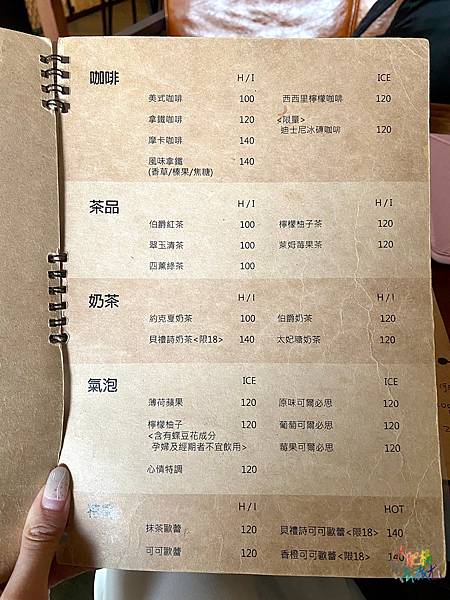 咖啡
H / I
美式咖啡 100
拿鐵咖啡 120
摩卡咖啡 140
風味拿鐵 140
(香草/榛果/焦糖)
ICE
西西里檸檬咖啡 120
<限量>
迪士尼冰磚咖啡 120
茶品
H / I
伯爵紅茶 100
翠玉清茶 100
四薰綠茶 100
H / I
檸檬柚子茶 120
萊姆莓果茶 120
奶茶
H / I
約克夏奶茶 100
貝禮詩奶茶<限18> 140
H / I
伯爵奶茶 120
太妃糖奶茶 120
氣泡
ICE
薄荷蘋果 120
檸檬柚子 120
<含有蝶豆花成分
孕婦及經期者不宜飲用>
心情特調 120
ICE
原味可爾必思 120
葡萄可爾必思 120
莓果可爾必思 120
H / I
抹茶歐蕾 120
可可歐蕾 120
HOT
貝禮詩可可歐蕾<限18> 140
香橙可可歐蕾<限18> 140